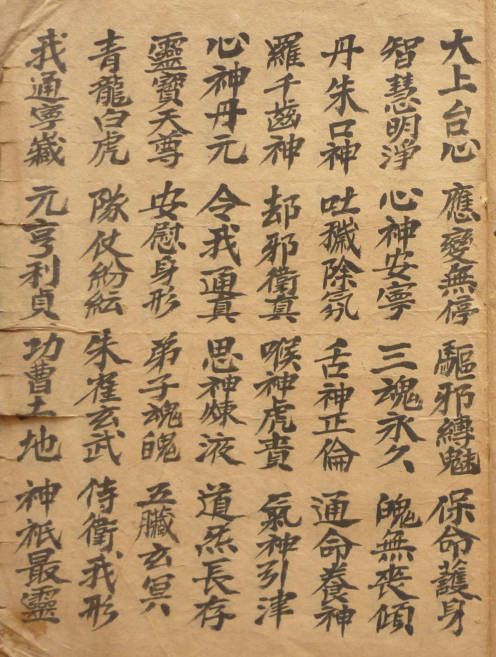 大上台心 應變無停 驅邪縛魅 保命護身
智慧明淨 心神安寧 三魂永久 魄無丧傾
丹朱口神 吐穢除氛 舌神正倫 通命養神
羅千齒神 却邪衛真 喉神虎賁 氣神引津
心神丹元 令我通真 思神煉液 道炁長存
靈寶天尊 安慰身形 弟子魂魄 五臟玄冥
青龍白虎 隊仗紛紜 朱雀玄武 侍衛我形
我通寧藏 元亨利貞 功曹土地 神祇最靈